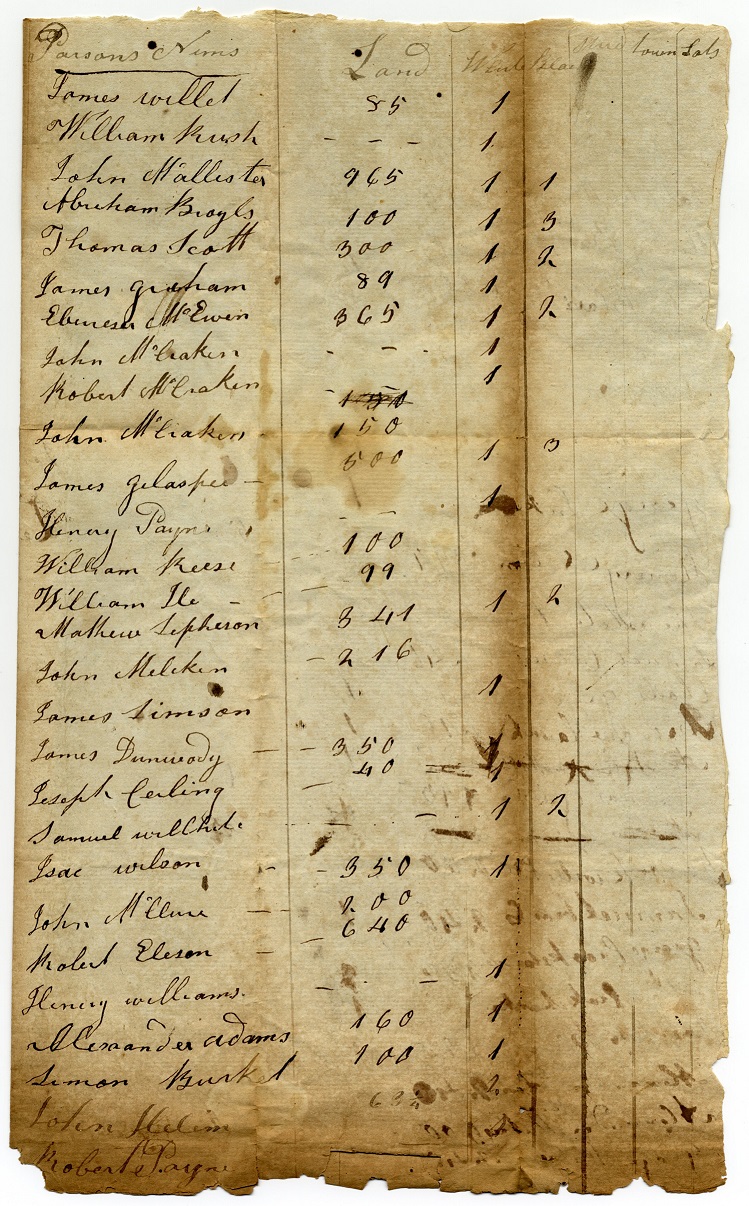 Parsons Nims Land White Blac town Lots
James willet 85 1
William Rush - - - 1
John Mcallister 965 1 1
Abreham Broyls 100 1 3
Thomas Scott 300 1 2
James graham 89 1
Ebeneser McEwin 365 1 2
John McCraken - - . 1
Robert McCraken - - 1
John McCraken 150
James gilaspee - 500 1 3
Henery Payn - - 1
William Reese 100
William Ile - 99
Mathew Sepheson 341 1 2
John Meleken - 216
James Simson . 1
James Dunwody - - 350 1
Joseph Cerling - 40 1
Samuel - . - 1 2
Isac wilson - - 350 1
John McClure - - 200
Robert Eleson - - 640
Henery williams. - . - 1
Alexander adams 160 1
Simon Burket 100 1
John Helim 2
Robert Payne